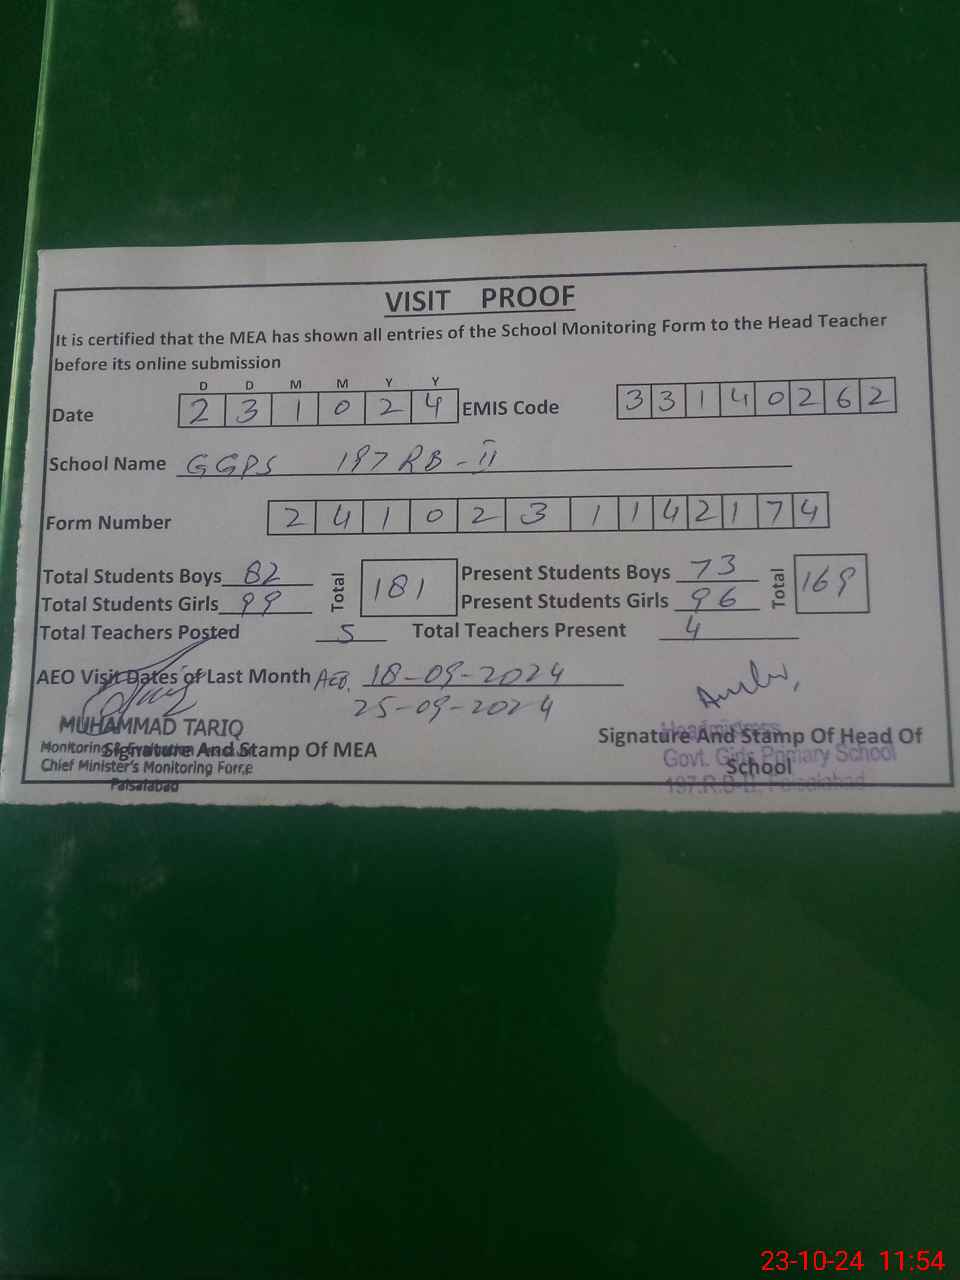 VISIT PROOF
It is certified that the MEA has shown all entries of the School Monitoring Form to the Head Teacher
before its online submission
D D M M Y Y
Date 2 3 1 0 2 4 EMIS Code 3 3 1 4 0 2 6 2
School Name GGPS 197 RB-II
Form Number 2 4 1 0 2 3 1 1 4 2 1 7 4
Total Students Boys 82 Total 181 Present Students Boys 73 Total 169
Total Students Girls 99 Present Students Girls 96
Total Teachers Posted 5 Total Teachers Present 4
AEO Visit Dates of Last Month AEO. 18-09-2024
25-09-2024
MUHAMMAD TARIQ
Signature And Stamp Of MEA
Monitoring &
Chief Minister's Monitoring Force
Faisalabad
Signature And Stamp Of Head Of
School
Headmistress
Govt. Girls Primary School
197.R.B-II, Faisalabad
23-10-24 11:54